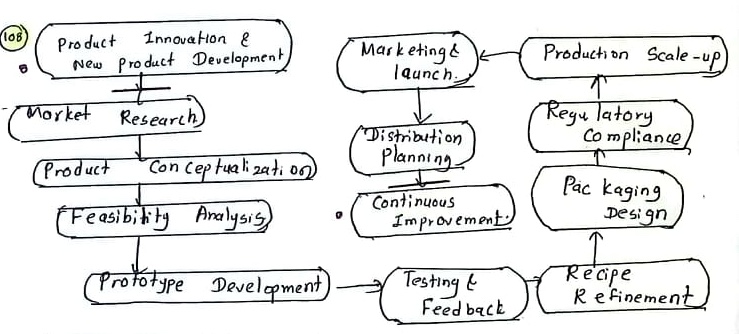 108
Product Innovation &
New product Development
Market Research
Product Conceptualization
Feasibility Analysis
Prototype Development
Testing &
Feedback
Recipe
Refinement
Packaging
Design
Regulatory
Compliance
Production Scale-up
Marketing &
launch.
Distribution
Planning
Continuous
Improvement.